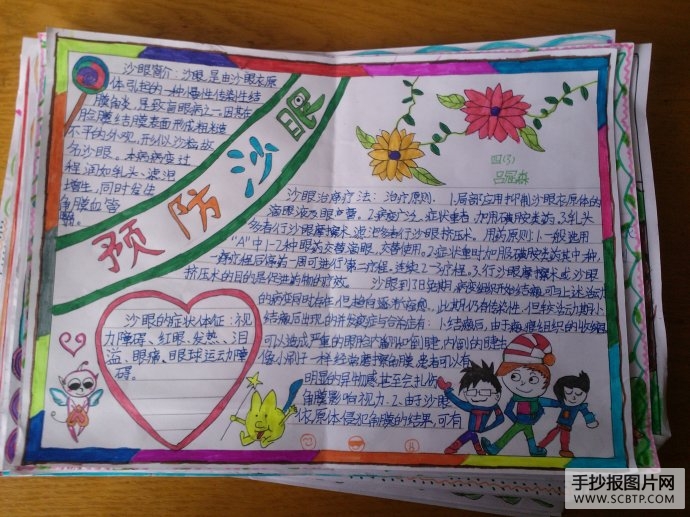 沙眼简介:沙眼,是由沙眼衣原
体引起的一种慢性传染性结
膜角膜炎,是致盲眼病之一。因其在
睑膜结膜表面形成粗糙
不平的外观,形似沙粒,故
名沙眼。本病病变过
程润如乳头、滤泡
增生,同时发生
角膜血管
翳。
预防沙眼
四(3)
吕冠森
沙眼治療疗法:治疗原则,1.局部应用抑制沙眼衣原体的
滴眼液及眼膏。2.病广泛,症状重者,加用磺胺类药。3.乳头
多者行沙眼摩擦术,滤泡多者行沙眼挤压术。用药原则:1.一般选用
“A”中1-2种眼药交替滴眼,交替使用。2.症状重时加服磺胺类药其中一种,
一疗程后停药一周可进行第二疗程,连续2-3疗程。3.行沙眼摩擦术或沙眼
挤压术的目的是促进药物的疗效。 沙眼到3B期,病变组织开始结瘢,可上述活动
的病变同时存在,但趋向逐渐痊愈,此期仍有传染性,但较活动期小
结瘢后出现的并发症与合治症有:1.结瘢后,由于瘢痕组织的收缩
可以造成严重的眼睑内翻和倒睫,内倒的睫毛
像小刷子一样经常磨擦角膜,患者可以有
明显的异物感甚至会扎伤
角膜影响视力。2.由于沙眼
衣原体侵犯角膜的结果,可有
沙眼的症状体征:视
力障碍、红眼、发热、泪
溢、眼痛、眼球运动障
碍。
手抄报图片网
WWW.SCBTP.COM